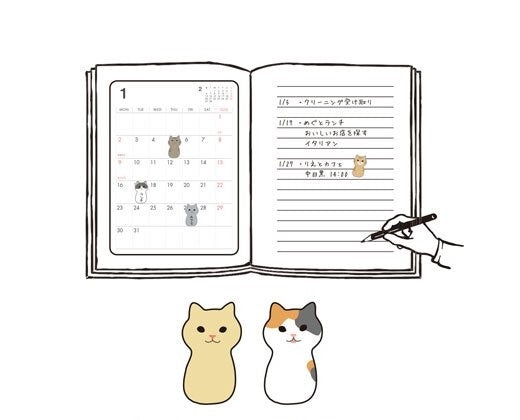 1
2
MON TUE WED THU FRI SAT SUN
1
2 3 4 5 6 7 8
9 10 11 12 13 14 15
16 17 18 19 20 21 22
23 24 25 26 27 28 29
30 31
1/5 ・クリーニング受け取り
1/19 ・めぐとランチ
おいしいお店を探す
イタリアン
1/29 ・りえとカフェ
中目黒 14:00